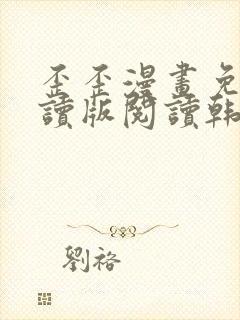 歪歪漫畫免
讀版閱讀韩
劉袼